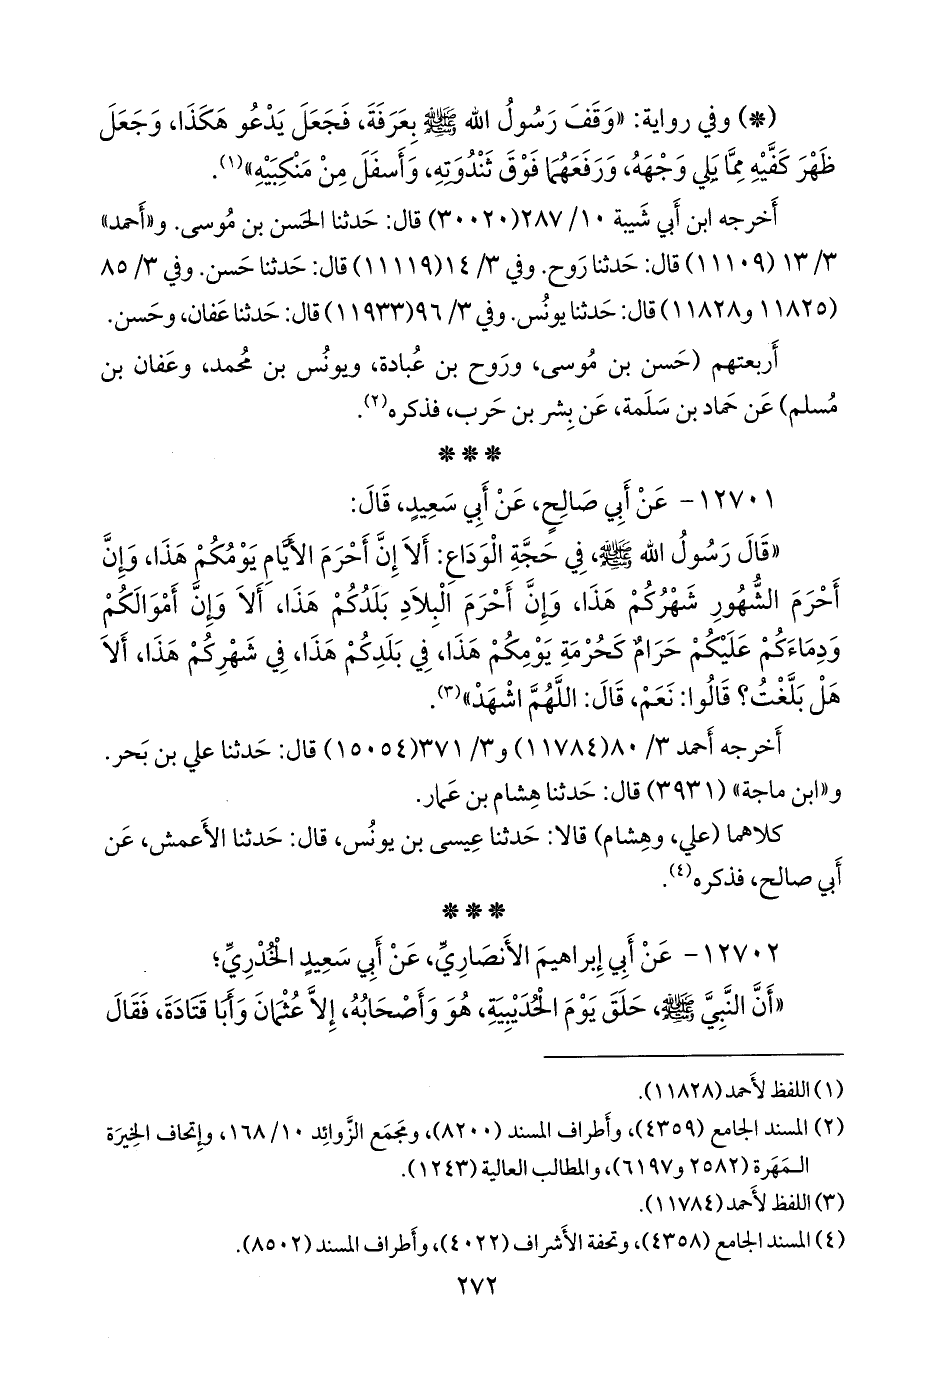 (*) وفي رواية: «وَقَفَ رَسُولُ الله ﷺ بِعَرَفَةَ، فَجَعَلَ يَدْعُو هَكَذَا، وَجَعَلَ
ظَهْرَ كَفَّيْهِ مِمَّا يَلِي وَجْهَهُ، وَرَفَعَهُمَا فَوْقَ ثَنْدُوَتِهِ، وَأَسفَلَ مِنْ مَنْكِبَيْهِ»(١).
أَخرجه ابن أَبي شَيبة ١٠/ ٢٨٧(٣٠٠٢٠) قال: حَدثنا الحَسن بن مُوسى. و«أَحمد»
٣/ ١٣ (١١١٠٩) قال: حَدثنا رَوح. وفي ٣/ ١٤(١١١١٩) قال: حَدثنا حَسن. وفي ٣/ ٨٥
(١١٨٢٥ و١١٨٢٨) قال: حَدثنا يونُس. وفي ٣/ ٩٦(١١٩٣٣) قال: حَدثنا عَفان، وحَسن.
أَربعتهم (حَسن بن مُوسى، ورَوح بن عُبادة، ويونُس بن مُحمد، وعَفان بن
مُسلم) عَن حَماد بن سَلَمة، عَن بِشر بن حَرب، فذكره(٢).
***
١٢٧٠١- عَنْ أَبِي صَالِحٍ، عَنْ أَبِي سَعِيدٍ، قَالَ:
«قَالَ رَسُولُ الله ﷺ، فِي حَجَّةِ الْوَدَاعِ: أَلاَ إِنَّ أَحْرَمَ الأَيَّامِ يَوْمُكُمْ هَذَا، وَإِنَّ
أَحْرَمَ الشُّهُورِ شَهْرُكُمْ هَذَا، وَإِنَّ أَحْرَمَ الْبِلاَدِ بَلَدُكُمْ هَذَا، أَلاَ وَإِنَّ أَمْوَالَكُمْ
وَدِمَاءَكُمْ عَلَيْكُمْ حَرَامٌ كَحُرْمَةِ يَوْمِكُمْ هَذَا، فِي بَلَدِكُمْ هَذَا، فِي شَهْرِكُمْ هَذَا، أَلاَ
هَلْ بَلَّغْتُ؟ قَالُوا: نَعَمْ، قَالَ: اللَّهُمَّ اشْهَدْ»(٣).
أَخرجه أَحمد ٣/ ٨٠(١١٧٨٤) و٣/ ٣٧١(١٥٠٥٤) قال: حَدثنا علي بن بَحر.
و«ابن ماجة» (٣٩٣١) قال: حَدثنا هِشام بن عَمار.
كلاهما (علي، وهِشام) قالا: حَدثنا عِيسى بن يونُس، قال: حَدثنا الأَعمش، عَن
أَبي صالح، فذكره(٤).
***
١٢٧٠٢- عَنْ أَبِي إِبراهيمَ الأَنصَارِيِّ، عَنْ أَبِي سَعِيدٍ الْخُدْرِيِّ؛
«أَنَّ النَّبِيَّ ﷺ، حَلَقَ يَوْمَ الْحُدَيْبِيَةِ، هُوَ وَأَصْحَابُهُ، إِلاَّ عُثْمَانَ وَأَبَا قَتَادَةَ، فَقَالَ
(١) اللفظ لأَحمد (١١٨٢٨).
(٢) المسند الجامع (٤٣٥٩)، وأَطراف المسند (٨٢٠٠)، ومَجمَع الزَّوائِد ١٠/ ١٦٨، وإِتحاف الخِيرَة
المَهَرة (٢٥٨٢ و٦١٩٧)، والمطالب العالية (١٢٤٣).
(٣) اللفظ لأَحمد (١١٧٨٤).
(٤) المسند الجامع (٤٣٥٨)، وتحفة الأَشراف (٤٠٢٢)، وأَطراف المسند (٨٥٠٢).
٢٧٢